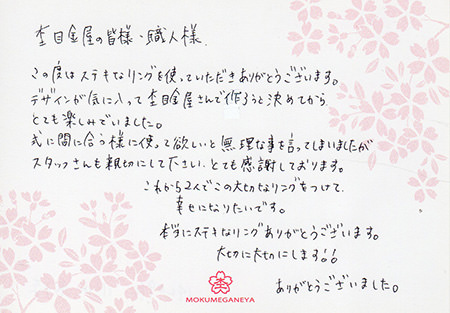 杢目金屋の皆様・職人様.
この度はステキなリングを使っていただきありがとうございます。
デザインが気に入って杢目金屋さんで作ろうと決めてから
とても楽しみでいました。
式に間に合う様に使って欲しいと無理な事を言ってしまいましたが
スタッフさんも親切にして下さい、とても感謝しております。
これから2人でこの大切なリングをつけて、
幸せになりたいです。
本当にステキなリングありがとうございます。
大切に大切にします!!
MOKUMEGANEYA
ありがとうございました。